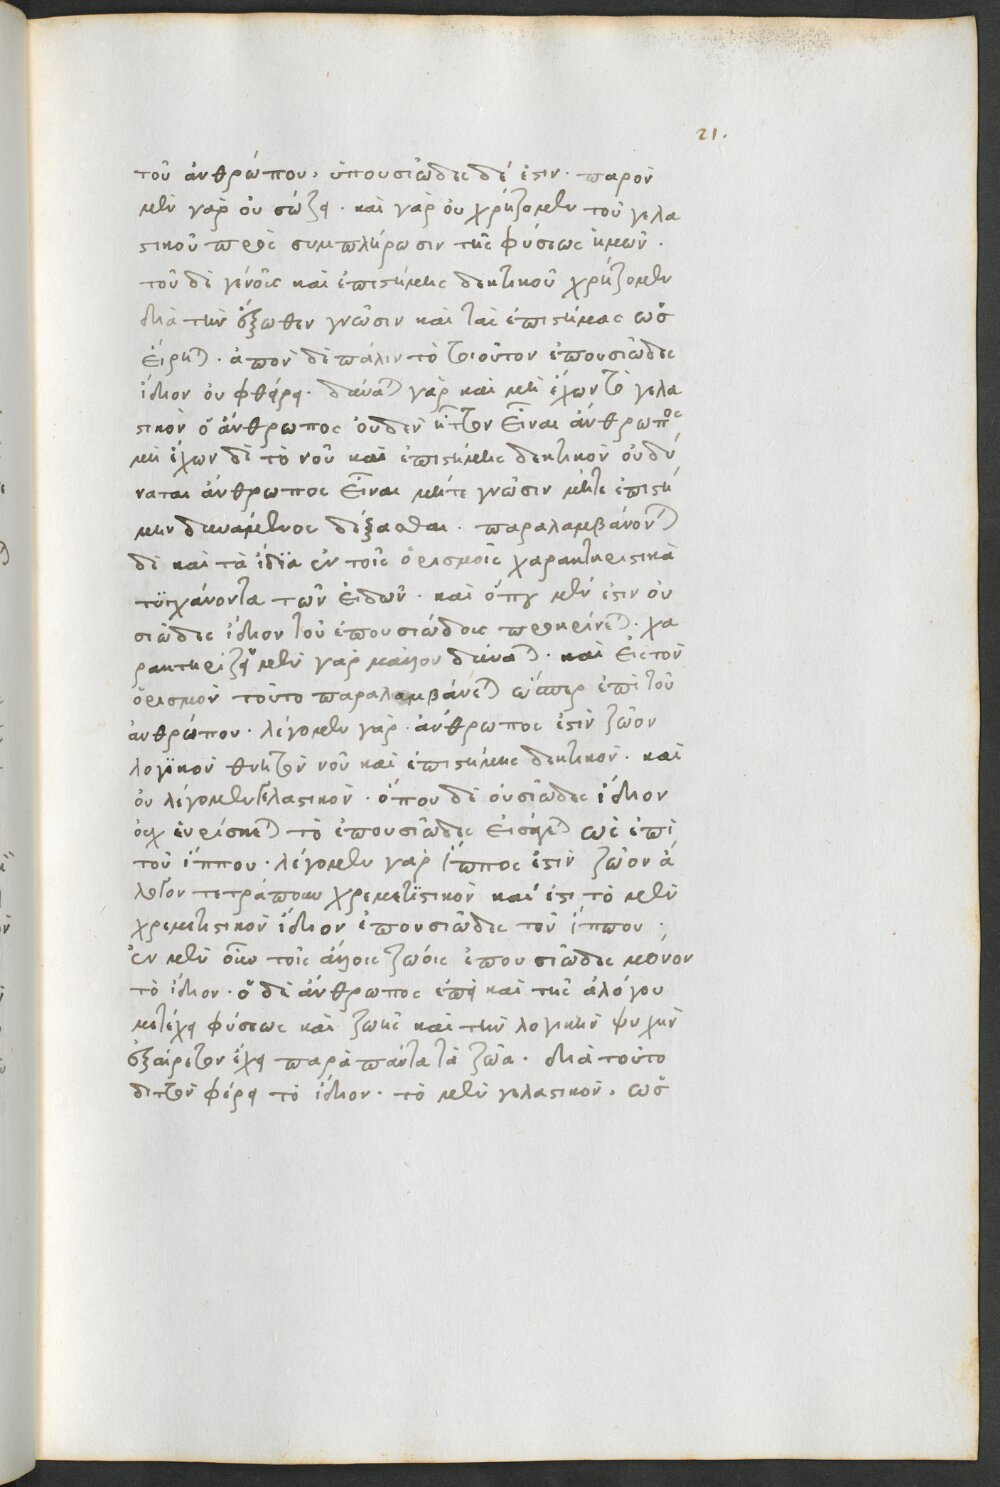 21.
τοῦ ἀνθρώπου, ἐπουσιῶδες δέ ἐστιν. παρὸν
μὲν γὰρ οὐ σώζει. καὶ γὰρ οὐ χρήζομεν τοῦ γελα
στικοῦ πρὸς συμπλήρωσιν τῆς φύσεως ἡμῶν.
τοῦ δὲ γένους καὶ ἐπιστήμης δεκτικοῦ χρήζομεν
διὰ τὴν ἔξωθεν γνῶσιν καὶ τὰς ἐπιστήμας ὡς
εἴρηται. ἀπὸν δὲ πάλιν τὸ τοιοῦτον ἐπουσιῶδες
ἴδιον οὐ φθείρει. δύναται γὰρ καὶ μὴ ἔχων τὸ γελα
στικὸν ὁ ἄνθρωπος οὐδὲν ἧττον εἶναι ἄνθρωπος
μὴ ἔχων δὲ τὸ νοῦ καὶ ἐπιστήμης δεκτικὸν οὐ δύ
ναται ἄνθρωπος εἶναι μήτε γνῶσιν μήτε ἐπιστή
μην δυνάμενος δέξασθαι. παραλαμβάνονται
δὲ καὶ τὰ ἴδια ἐν τοῖς ὁρισμοῖς χαρακτηριστικὰ
τυγχάνοντα τῶν εἰδῶν. καὶ ὅπου μέν ἐστιν οὐ
σιῶδες ἴδιον τοῦ ἐπουσιώδους προκρίνεται. χα
ρακτηρίζειν μὲν γὰρ μᾶλλον δύναται. καὶ εἰς τὸν
ὁρισμὸν τοῦτο παραλαμβάνεται ὥσπερ ἐπὶ τοῦ
ἀνθρώπου. λέγομεν γὰρ. ἄνθρωπος ἐστὶν ζῶον
λογικὸν θνητὸν νοῦ καὶ ἐπιστήμης δεκτικὸν. καὶ
οὐ λέγομεν γελαστικὸν. ὅπου δὲ οὐσιῶδες ἴδιον
οὐχ εὑρίσκεται τὸ ἐπουσιῶδες εἰσάγεται ὡς ἐπὶ
τοῦ ἵππου. λέγομεν γὰρ ἵππος ἐστὶν ζῶον ἄ
λογον τετράπουν χρεμετιστικὸν καί ἐστι τὸ μὲν
χρεμετιστικὸν ἴδιον ἐπουσιῶδες τοῦ ἵππου.
ἐν μὲν οὖν τοῖς ἄλλοις ζώοις ἐπουσιῶδες μόνον
τὸ ἴδιον. ὁ δὲ ἄνθρωπος ἐπεὶ καὶ τῆς ἀλόγου
μετέχει φύσεως καὶ ζωῆς καὶ τὴν λογικὴν ψυχὴν
ἐξαίρετον ἔχει παρὰ πάντα τὰ ζῶα. διὰ τοῦτο
διττὸν φέρει τὸ ἴδιον. τὸ μὲν γελαστικὸν, ὡς